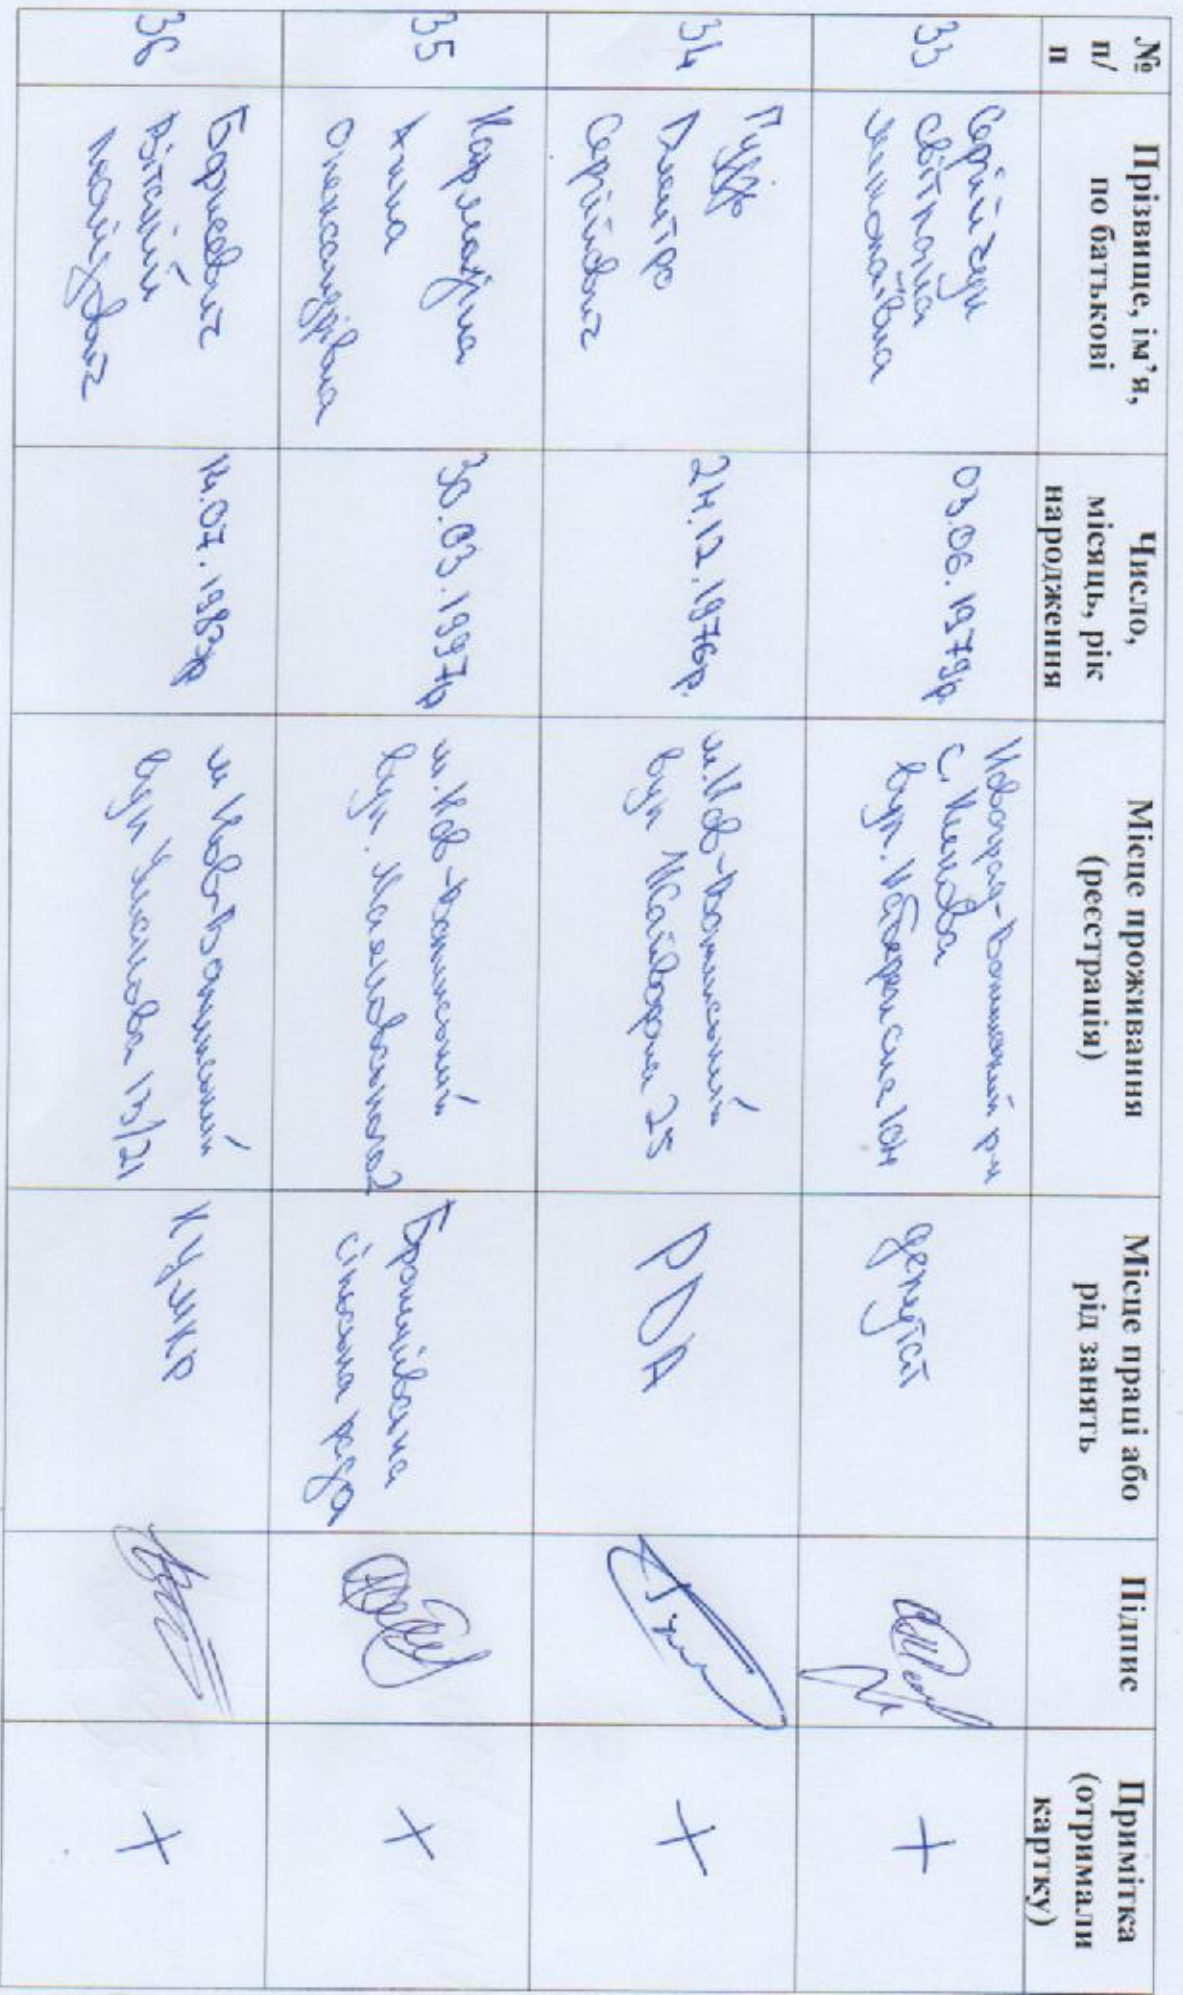 № п/п
Прізвище, ім’я, по батькові
Число, місяць, рік народження
Місце проживання (реєстрація)
Місце праці або рід занять
Підпис
Примітка (отримали картку)
33
Сергійчук
Світлана
Миколаївна
03.06.1979р.
Новоград-Волинський р-н
с.
вул. Набережна 104
депутат
+
34
Гудзь
Дмитро
Сергійович
24.12.1976р.
м. Нов-Волинський
вул 25
РДА
+
35
Кармазіна
Анна
Олександрівна
30.03.1997р
м. Нов-Волинський
вул. Маяковського 2
сільська рада
+
36
Борисевич
Віталій
14.07.1987р
м Нов-Волинський
вул 13/21
+